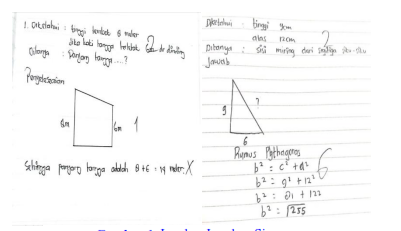 1. Diketahui : tinggi tembok 8 meter
jika kaki tangga terletak 6m dr dinding
Ditanya : Panjang tangga ....?
Penyelesaian
8m
6m
1
Sehingga panjang tangga adalah 8 + 6 = 14 meter. X
Diketahui : tinggi 9cm
alas 12cm
2
Ditanya : sisi miring dari segitiga siku-siku
Jawab
9
?
6
Rumus Pythagoras
b² = c² + a²
b² = 9² + 12²
6
b² = 81 + 122
b² = √255